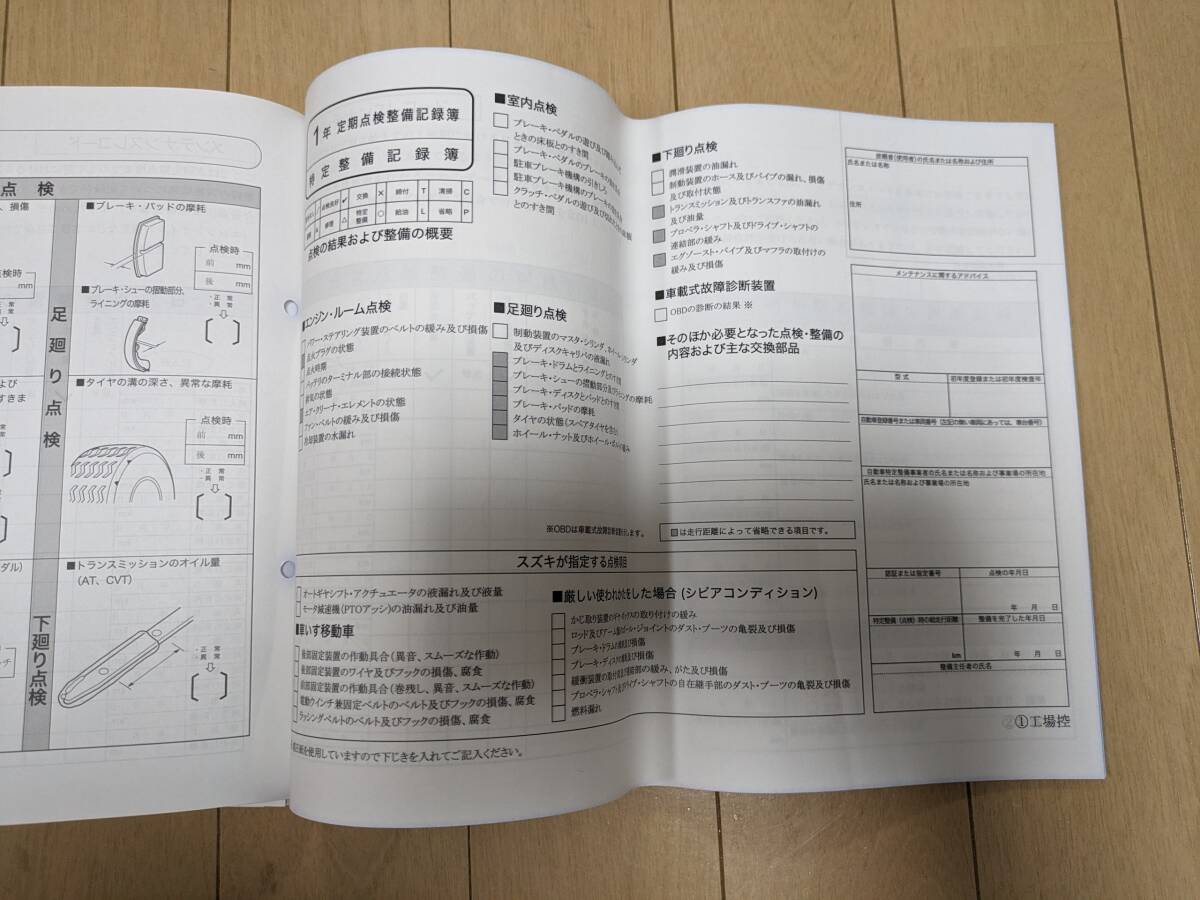 メンテナンスレコード
点 検
、損傷
■ブレーキ・パッドの摩耗
点検時
前 mm
後 mm
・正 常
・異 常
■ブレーキ・シューの摺動部分、
ライニングの摩耗
足廻り点検
■タイヤの溝の深さ、異常な摩耗
点検時
前 mm
後 mm
・正 常
・異 常
■トランスミッションのオイル量
(AT、CVT)
・正 常
・異 常
下廻り点検
1年 定期点検整備記録簿
特 定 整 備 記 録 簿
点検良好 ✓ 交換 × 締付 T 清掃 C
修理 △ 特定整備 ○ 給油 L 省略 P
点検の結果および整備の概要
■室内点検
ブレーキ・ペダルの遊び及び踏み込んだ
ときの床板とのすき間
ブレーキ・ペダルのブレーキの効き具合
駐車ブレーキ機構の引きしろ
駐車ブレーキ機構のブレーキの効き具合
クラッチ・ペダルの遊び及び切れたときの床板
とのすき間
■エンジン・ルーム点検
パワー・ステアリング装置のベルトの緩み及び損傷
点火プラグの状態
点火時期
バッテリのターミナル部の接続状態
排気の状態
エア・クリーナ・エレメントの状態
ファン・ベルトの緩み及び損傷
冷却装置の水漏れ
■足廻り点検
制動装置のマスタ・シリンダ、ホイール・シリンダ
及びディスクキャリパの液漏れ
ブレーキ・ドラムとライニングとのすき間
ブレーキ・シューの摺動部分及びライニングの摩耗
ブレーキ・ディスクとパッドとのすき間
ブレーキ・パッドの摩耗
タイヤの状態(スペアタイヤを含む)
ホイール・ナット及びホイール・ボルトの緩み
※OBDは車載式故障診断装置を示します。
■下廻り点検
潤滑装置の油漏れ
制動装置のホース及びパイプの漏れ、損傷
及び取付状態
トランスミッション及びトランスファの油漏れ
及び油量
プロペラ・シャフト及びドライブ・シャフトの
連結部の緩み
エグゾースト・パイプ及びマフラの取付けの
緩み及び損傷
■車載式故障診断装置
OBDの診断の結果 ※
■そのほか必要となった点検・整備の
内容および主な交換部品
は走行距離によって省略できる項目です。
スズキが指定する点検項目
オートギヤシフト・アクチュエータの液漏れ及び液量
モータ減速機(PTOアッシ)の油漏れ及び油量
■車いす移動車
後部固定装置の作動具合(異音、スムーズな作動)
前部固定装置のワイヤ及びフックの損傷、腐食
前部固定装置の作動具合(巻残し、異音、スムーズな作動)
電動ウインチ兼固定ベルトのベルト及びフックの損傷、腐食
ラッシングベルトのベルト及びフックの損傷、腐食
■厳しい使われかたをした場合 (シビアコンディション)
かじ取り装置のギヤ・ボックスの取り付けの緩み
ロッド及びアーム類のボール・ジョイントのダスト・ブーツの亀裂及び損傷
ブレーキ・ドラムの摩耗及び損傷
ブレーキ・ディスクの摩耗及び損傷
緩衝装置の取付部及び連結部の緩み、がた及び損傷
プロペラ・シャフト及びドライブ・シャフトの自在継手部のダスト・ブーツの亀裂及び損傷
燃料漏れ
を使用していますので下じきを入れてご記入ください。
依頼者(使用者)の氏名または名称および住所
氏名または名称
住所
メンテナンスに関するアドバイス
型 式
初年度登録または初年度検査年
自動車登録番号または車両番号 (左記の無い車両にあっては、車台番号)
自動車特定整備事業者の氏名または名称および事業場の所在地
氏名または名称および事業場の所在地
認証または指定番号
点検の年月日
年 月 日
特定整備(点検)時の総走行距離
整備を完了した年月日
km
年 月 日
整備主任者の氏名
①工場控